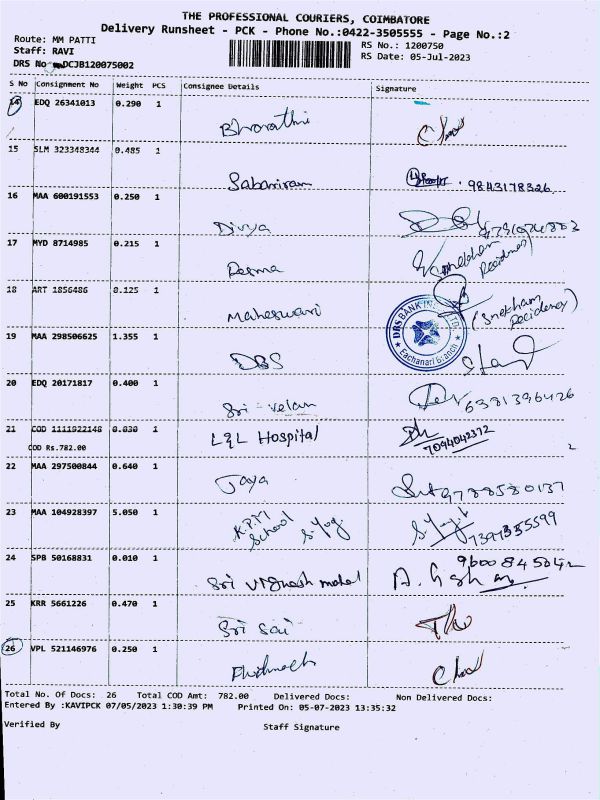 THE PROFESSIONAL COURIERS, COIMBATORE
Delivery Runsheet - PCK - Phone No.:0422-3505555 - Page No.:2
Route: MM PATTI
Staff: RAVI
DRS No DCJB120075002
RS No.: 1200750
RS Date: 05-Jul-2023
S No Consignment No Weight PCS Consignee Details Signature
14 EDQ 26341013 0.290 1 Bharathi
15 SLM 323348344 0.485 1 Sabariram 9843178326
16 MAA 600191553 0.250 1 Divya
17 MYD 8714985 0.215 1 Snekham Recidency
18 ART 1856486 0.125 1 Maheswari (Snekham Recidency)
DBS BANK INDIA LTD. Eachanari Branch
19 MAA 298506625 1.355 1 DBS
20 EDQ 20171817 0.400 1 Sri - velan 6381396426
21 COD 1111922148 0.830 1 L&L Hospital 7094042372
COD Rs.782.00 2
22 MAA 297500844 0.640 1 Jaya 9788580137
23 MAA 104928397 5.050 1 K.P.M School S-Yog. 7397335599
24 SPB 50168831 0.010 1 Sri Vignash mahal 9600845042
25 KRR 5661226 0.470 1 Sri Sai
26 VPL 521146976 0.250 1
Total No. Of Docs: 26 Total COD Amt: 782.00 Delivered Docs: Non Delivered Docs:
Entered By :KAVIPCK 07/05/2023 1:30:39 PM Printed On: 05-07-2023 13:35:32
Verified By Staff Signature